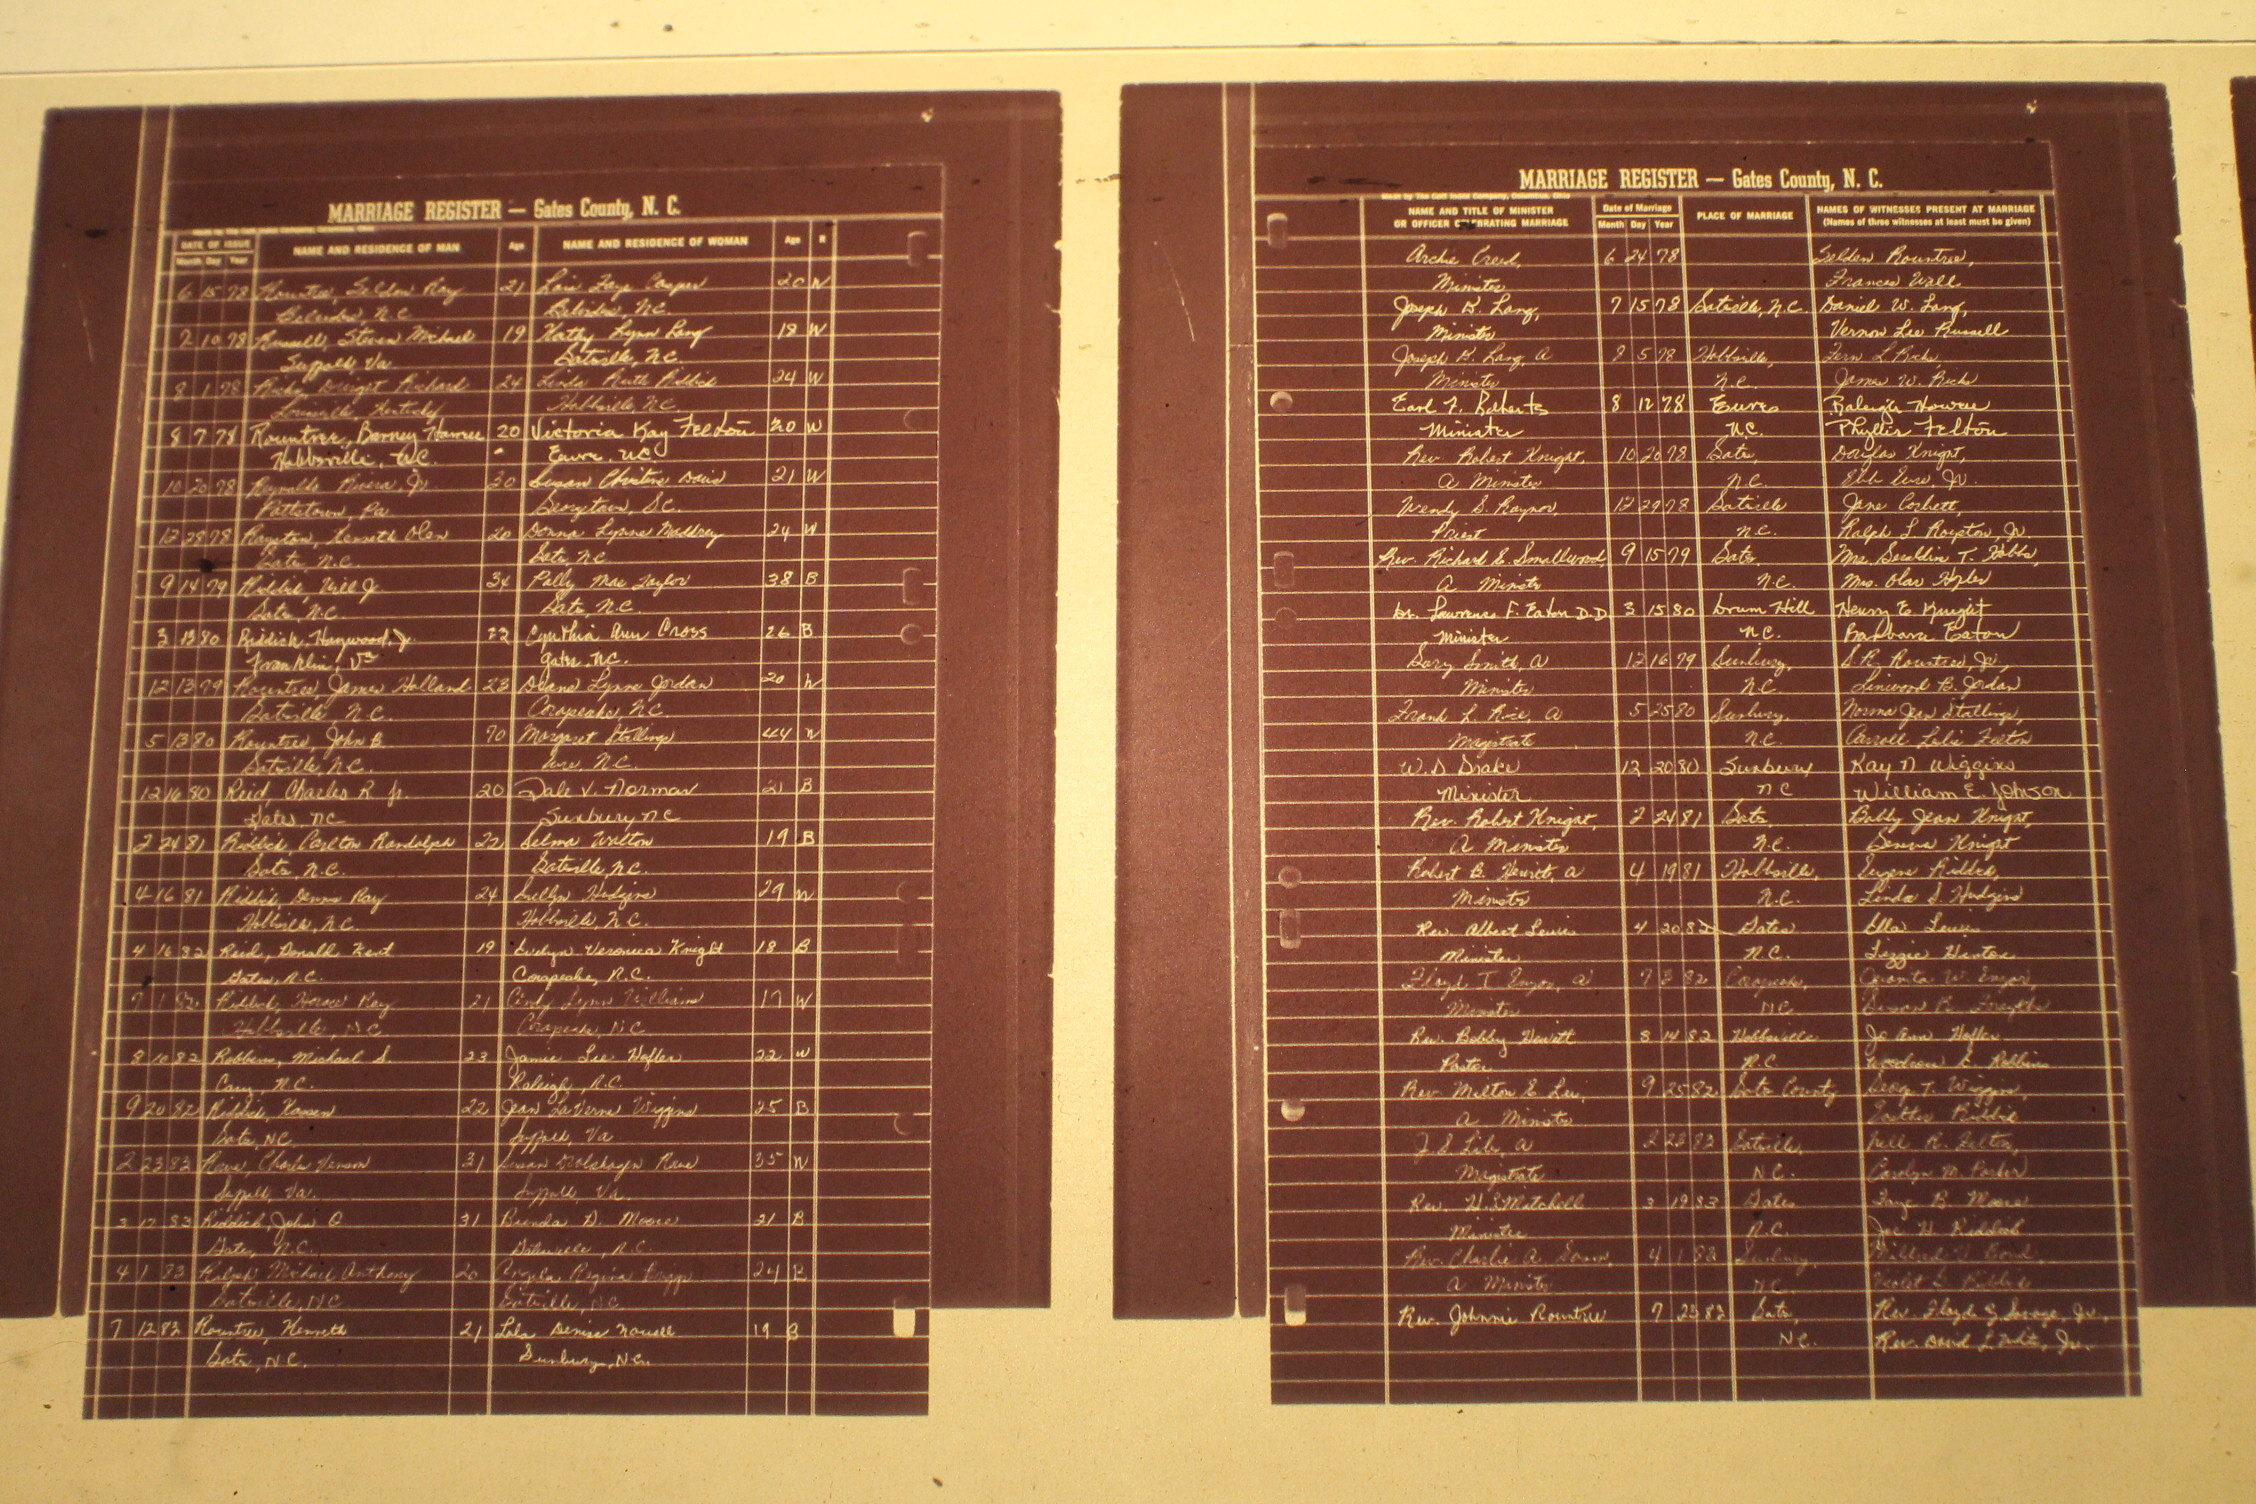 MARRIAGE REGISTER — Gates County, N. C.
DATE OF ISSUE
Month Day Year
NAME AND RESIDENCE OF MAN
Age
NAME AND RESIDENCE OF WOMAN
Age
R
6 15 78 Rountree, Selden Ray 21 Lois Faye Casper 20 W
Belvidere, N.C. Belvidere, N.C.
7 10 78 Russell, Steven Michael 19 Kathy Lynn Lang 18 W
Suffolk, Va. Gatesville, N.C.
8 1 78 Ricks, Dwight Richard 24 Linda Ruth Riddick 24 W
Louisville, Kentucky Hobbsville, N.C.
8 7 78 Rountree, Barney 20 Victoria Kay Felton 20 W
Hobbsville, N.C. Eure, N.C.
10 20 78 Reynolds Rivera, Jr. 30 Susan Christine Davis 21 W
Pottstown, Pa. Georgetown, S.C.
12 28 78 Royston, Kenneth Olen 20 Donna Lynne 24 W
Gates, N.C. Gates, N.C.
9 14 79 Riddick, Will J. 34 Polly Mae Taylor 38 B
Gates, N.C. Gates, N.C.
3 13 80 Riddick, Haywood, Jr. 22 Cynthia Ann Cross 26 B
Franklin, Va Gates, N.C.
12 13 79 Rountree, James Holland 23 Diane Lynne Jordan 20 W
Gatesville, N.C. Corapeake, N.C.
5 13 80 Rountree, John B. 70 Margaret Stallings 44 W
Gatesville, N.C. Eure, N.C.
12 16 80 Reid Charles R Jr. 20 Dale V. Norman 21 B
Gates, NC Sunbury NC
2 24 81 Riddick, Carlton Randolph 22 Selma Walton 19 B
Gates, N.C. Gatesville, N.C.
4 16 81 Riddick, Dennis Ray 24 Suellyn Hudgins 29 W
Hobbsville, N.C. Hobbsville, N.C.
4 16 82 Reid, Donald Kent 19 Evelyn Veronica Knight 18 B
Gates, N.C. Corapeake, N.C.
7 1 82 Riddick, Horace Ray 21 Cindy Lynn Williams 17 W
Hobbsville, N.C. Corapeake, N.C.
8 10 82 Robbins, Michael S. 23 Jamie Lee Hofler 22 W
Cary, N.C. Raleigh, N.C.
9 20 82 Riddick, 22 Jean LaVerne Wiggins 25 B
Gates, N.C. Suffolk, Va.
2 23 83 Rowe, Charles Venson 31 Susan Rowe 35 W
Suffolk, Va. Suffolk, Va.
3 17 83 Riddick, John O 31 Brenda D. Moore 21 B
Gates, N.C. Gatesville, N.C.
4 1 83 Ralph Michael Anthony 20 Angela Regina 24 B
Gatesville, N.C. Gatesville, N.C.
7 12 83 Rountree, Kenneth 21 Lola Denise Nowell 19 B
Gates, N.C. Sunbury, N.C.
MARRIAGE REGISTER — Gates County, N. C.
NAME AND TITLE OF MINISTER
OR OFFICER CELEBRATING MARRIAGE
Date of Marriage
Month Day Year
PLACE OF MARRIAGE
NAMES OF WITNESSES PRESENT AT MARRIAGE
(Names of three witnesses at least must be given)
Archie Creed, 6 24 78 Selden Rountree,
Minister Frances Wall
Joseph B. Lang, 7 15 78 Gatesville, N.C. Daniel W. Lang,
Minister Vernon Lee Russell
Joseph B. Lang, A 8 5 78 Hobbsville, Fern L Ricks
Minister N.C. James W. Ricks
Earl F. Roberts 8 12 78 Eure Raleigh
Minister N.C. Phyllis Felton
Rev. Robert Knight, 10 20 78 Gates, Douglas Knight,
A Minister N.C. Ebb Eure, Jr.
Wendy S. Raynor, 12 29 78 Gatesville Jane Corbett,
Priest N.C. Ralph L Royston, Jr.
Rev. Richard E. Smallwood, 9 15 79 Gates, Mrs. Geraldine T. Hobbs,
A Minister N.C. Mrs. Olar
Dr. Lawrence F. Eaton D.D. 3 15 80 Drum Hill Henry E Knight
Minister N.C. Barbara Eaton
Gary Smith, A 12 16 79 Sunbury, S.R. Rountree, Jr.,
Minister N.C. Linwood B. Jordan
Frank L. Rice, A 5 25 80 Sunbury, Norma Jean Stallings,
Magistrate N.C. Carroll Leslie Felton
W. D. Drake 12 20 80 Sunbury Kay N Wiggins
Minister NC William E. Johnson
Rev. Robert Knight, 2 24 81 Gates, Bobby Jean Knight,
A Minister N.C. Geneva Knight
Robert B. Hewitt, A 4 19 81 Hobbsville, Eugene Riddick,
Minister N.C. Linda S. Hudgins
Rev. Albert Lewis 4 20 82 Gates Ella Lewis
Minister N.C. Lizzie Hinton
Floyd T. A 7 3 82 Corapeake, Juanita W.
Minister N.C.
Rev. Bobby Hewitt 8 14 82 Hobbsville Jo Ann Hofler
Pastor N.C. Woodrow C. Robbins
Rev. Milton E. Lee, 9 25 82 Gates County George T. Wiggins,
A Minister Riddick
J. S. A 2 23 83 Gatesville, Nell R. Felton,
Magistrate N.C. Carolyn M. Parker
Rev. W. S. Mitchell 3 19 83 Gates Faye B. Moore
Minister N.C. Joe H. Riddick
Rev. Charlie A. 4 1 83 Sunbury, Millard Bond
A Minister N.C. Violet Riddick
Rev. Johnnie Rountree 7 23 83 Gates, Rev. Floyd G. Savage, Jr.,
N.C. Rev. David L White, Jr.